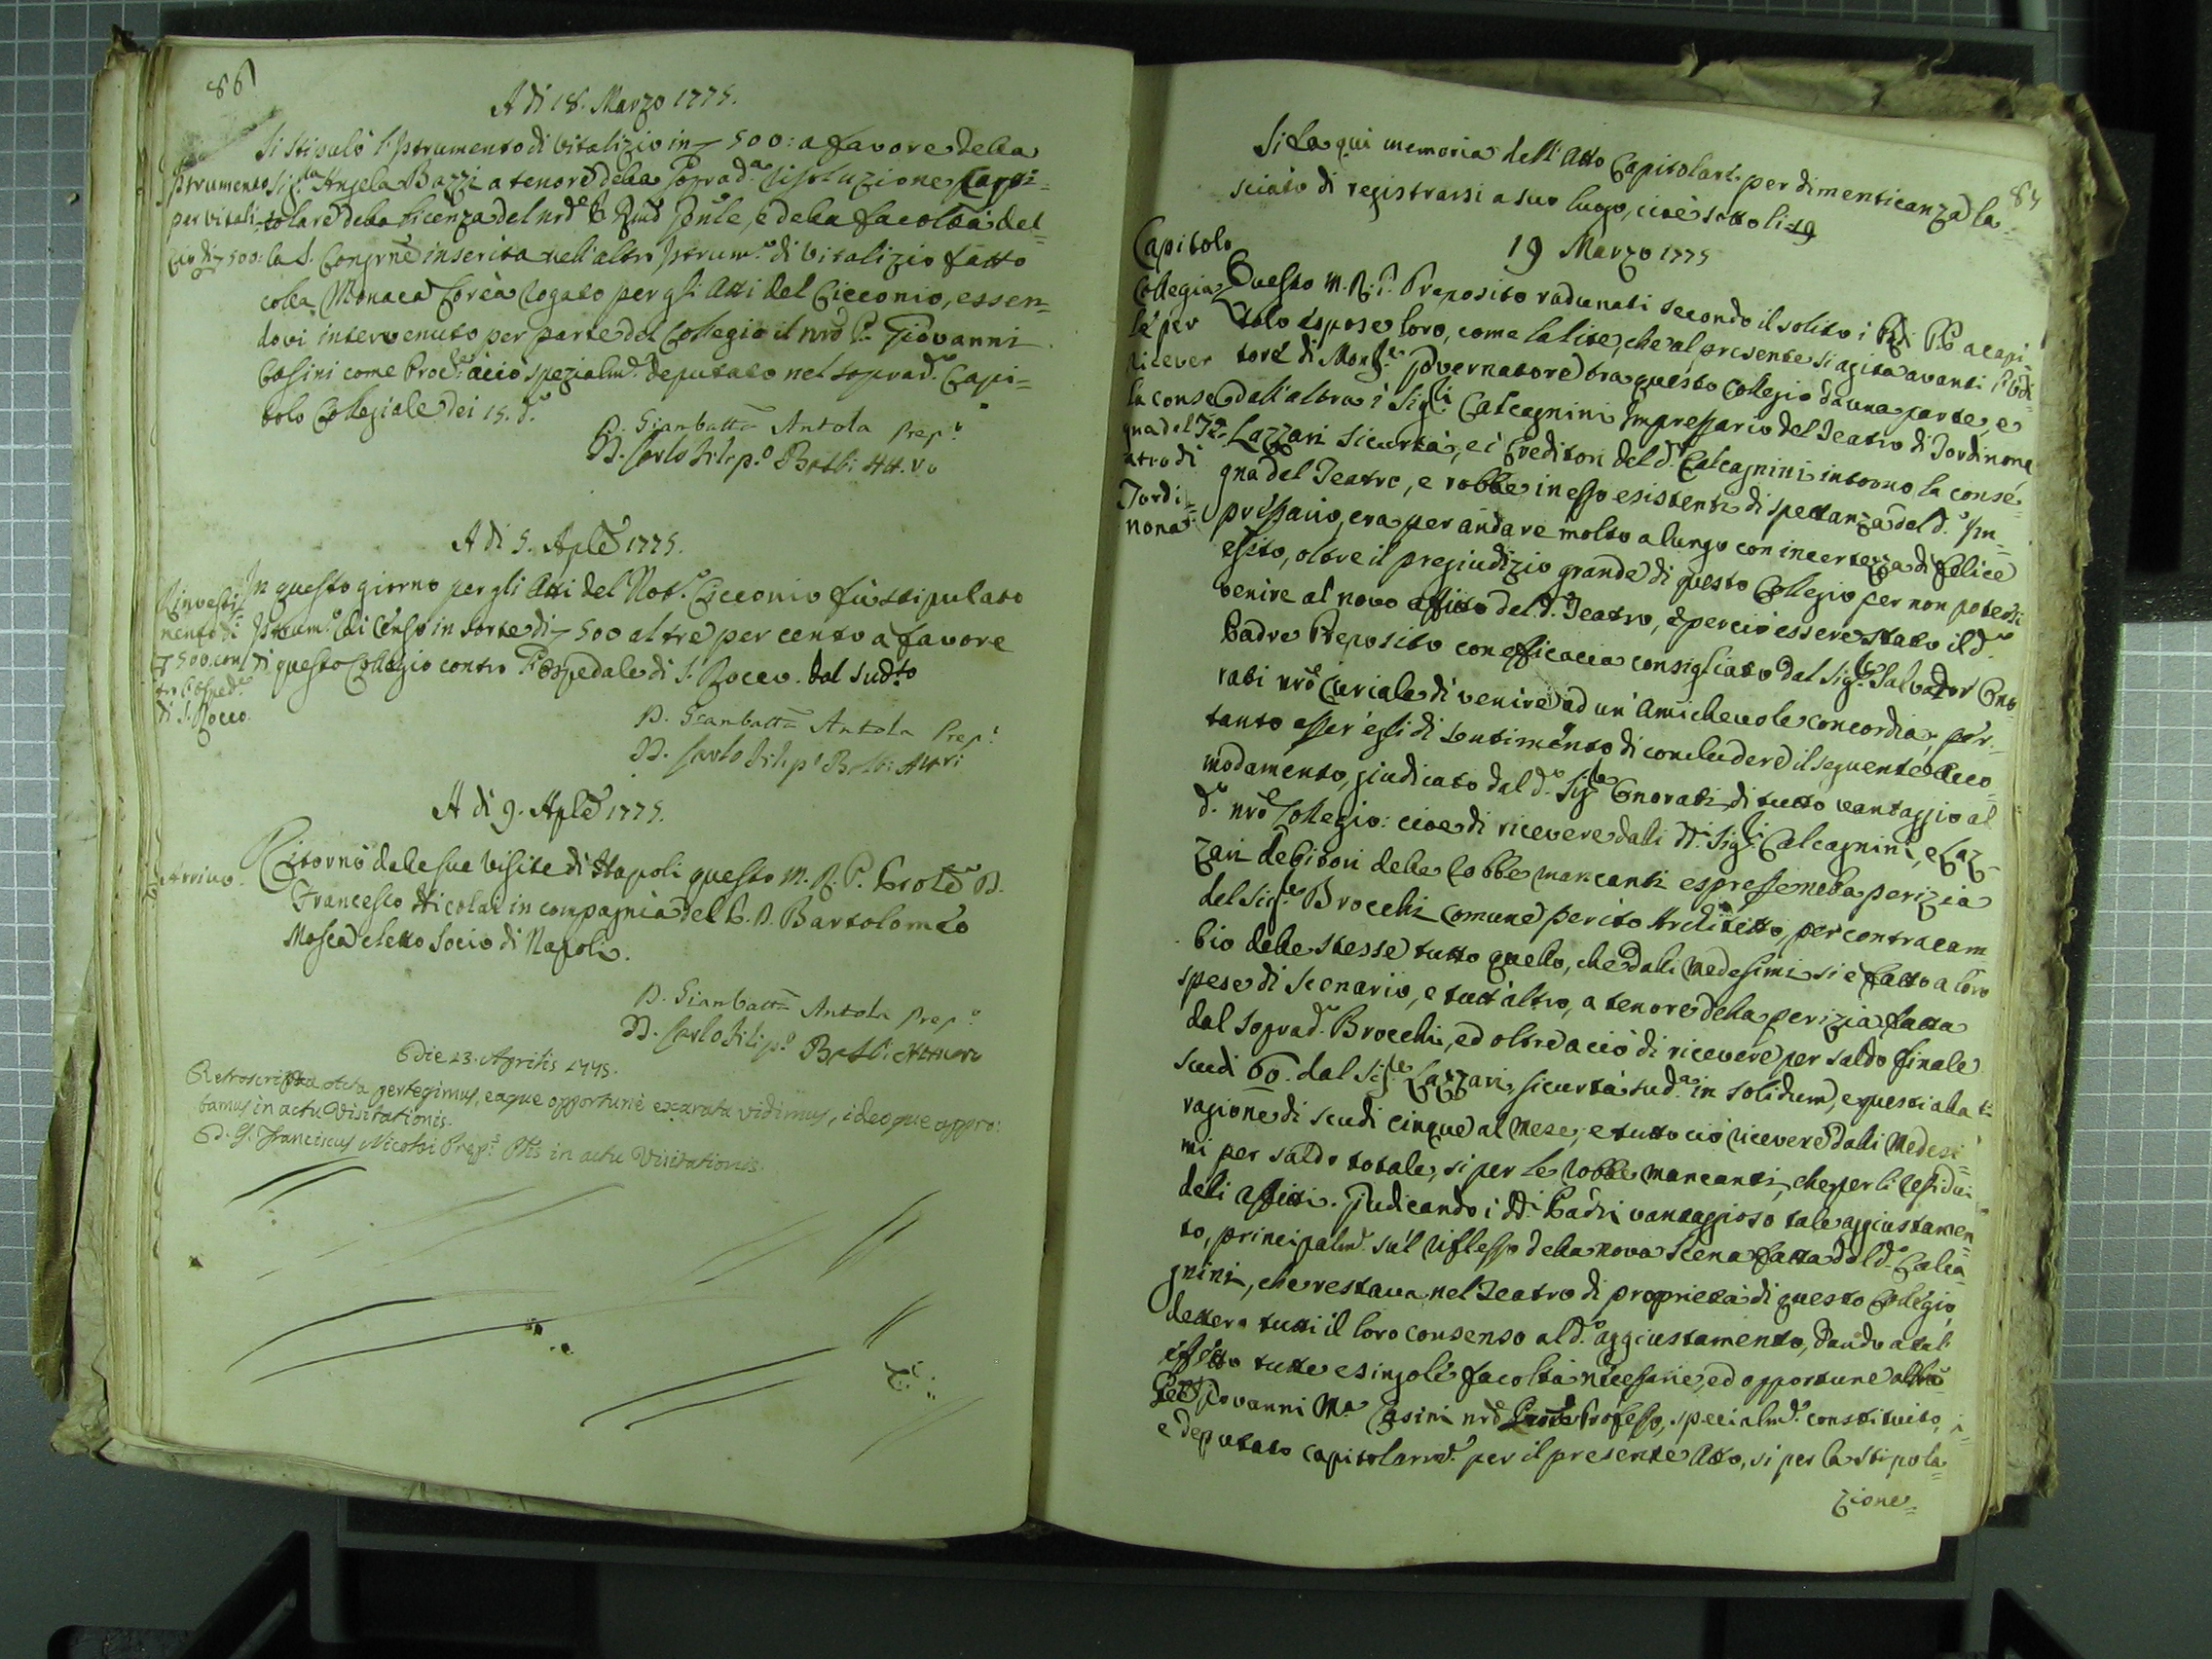 86
A di 18. Marzo 1775.
Si stipulò l'Istrumento di Vitalizio in 500: a favore della
Sig.ra Angela Bazzi a tenore della soprad.a risoluzione Capi=
tolare della licenza del nrõ P. Rmõ Gnãle, e della facoltà del=
la S. Congrne inserita nell'altro Istrum.o di Vitalizio fatto
colla Monaca rogato per gli Atti del Cicconio, essen=
dovi intervenuto per parte del Collegio il nrõ P. Giovanni
Casini come Proc.e acciò spezialm.e deputato nel soprad.o Capi=
tolo Collegiale dei 15. d.o
D. Gianbatta Antola Prep.o
D. Carlo Filip.o Att.ro
Istrumento
per vitali=
zio di 500:
A di 5. Aple 1775.
In questo giorno per gli Atti del Not.o Cicconio fù stipulato
Istrum.o di Censo in sorte di 500 al tre per cento a favore
di questo Collegio contro l'Ospedale di S. Rocco. dal sud.to
Rinvesti=
mento di
500. con=
tro l'Osped.e
di S. Rocco.
D. Gianbatta Antola Prep.o
D. Carlo Filip.o Att.ri
A di 9. Aple 1775.
Arrivo.
Ritornò dalle sue Visite di Napoli questo M. R. P. D.
Francesco Nicolai in compagnia del P. D. Bartolomeo
Mosca eletto Socio di Napoli.
D. Gianbatta Antola Prep.o
D. Carlo Filip.o Attuaro
Die 23. Aprilis 1775.
Retroscripta Acta perlegimus, eaque opportunè exarata vidimus, ideoque appro:
bamus in actu Visitationis.
D. Franciscus Nicolai Prep.s in actu Visitationis.
87
Si fa qui memoria dell'Atto Capitolare per dimenticanza la=
sciato di registrarsi a suo luogo, cioè sotto li 19
19 Marzo 1775
Capitolo
Collegia=
le per
ricever
la conse=
gna del Te=
atro di
Tordi=
nona
Questo M. R. P. Preposito radunati secondo il solito i Rdi PP. a capi=
tolo espose loro, come la lite, che al presente si agita avanti l'Udi=
tore di Mons.re Governatore tra questo Collegio da una parte, e
dall'altra i Sig.ri Calcagnini Impressario del Teatro di Tordinona
Lazzari sicurtà, e i Creditori del d.o Calcagnini intorno la conse=
gna del Teatro, e robbe in esso esistenti di spettanza del d.o Im=
pressario, era per andare molto a lungo con incertezza di felice
esito, oltre il pregiudizio grande di questo Collegio per non potersi
venire al novo affitto del d.o Teatro, e perciò essere stato il d.o
Padre Preposito con efficacia consigliato dal Sig.re Salvador Ono=
rati nrõ Curiale di venire ad un'amichevole concordia; per=
tanto esser egli di sentimento di concludere il seguente acco=
modamento, giudicato dal d.o Sig.re Onorati di tutto vantaggio al
d.o nrõ Collegio: cioe di ricevere dalli dd.i Sig.ri Calcagnini, e Laz=
zari debitori delle robbe mancanti espresse nella perizia
del Sig.re Brocchi comune perito Architetto, per contracam=
bio delle stesse tutto quello, che dalli medesimi si è fatto a loro
spese di scenario, e tutt'altro, a tenore della perizia fatta
dal soprad.o Brocchi, ed oltre a ciò di ricevere per saldo finale
scudi 60. dal Sig.re Lazzari, sicurtà sud.a in solidum, e questi alla
ragione di scudi cinque al mese, e tutto ciò ricevere dalli medesi=
mi per saldo totale, si per le robbe mancanti, che per li residui
deli affitti. Giudicando i dd.i Padri vantaggioso tale aggiustamen=
to, principalm.e sul riflesso della nova scena fatta dal d.o Calca=
gnini, che restava nel Teatro di proprietà di questo Collegio,
dettero tutti il loro consenso al d.o aggiustamento, dando a tal'
effetto tutte e singole facoltà necessarie, ed opportune al
Giovanni M.a Casini nrõ Professo, specialm.e constituito,
e deputato capitolarm.e per il presente Atto, si per la stipola=
zione=